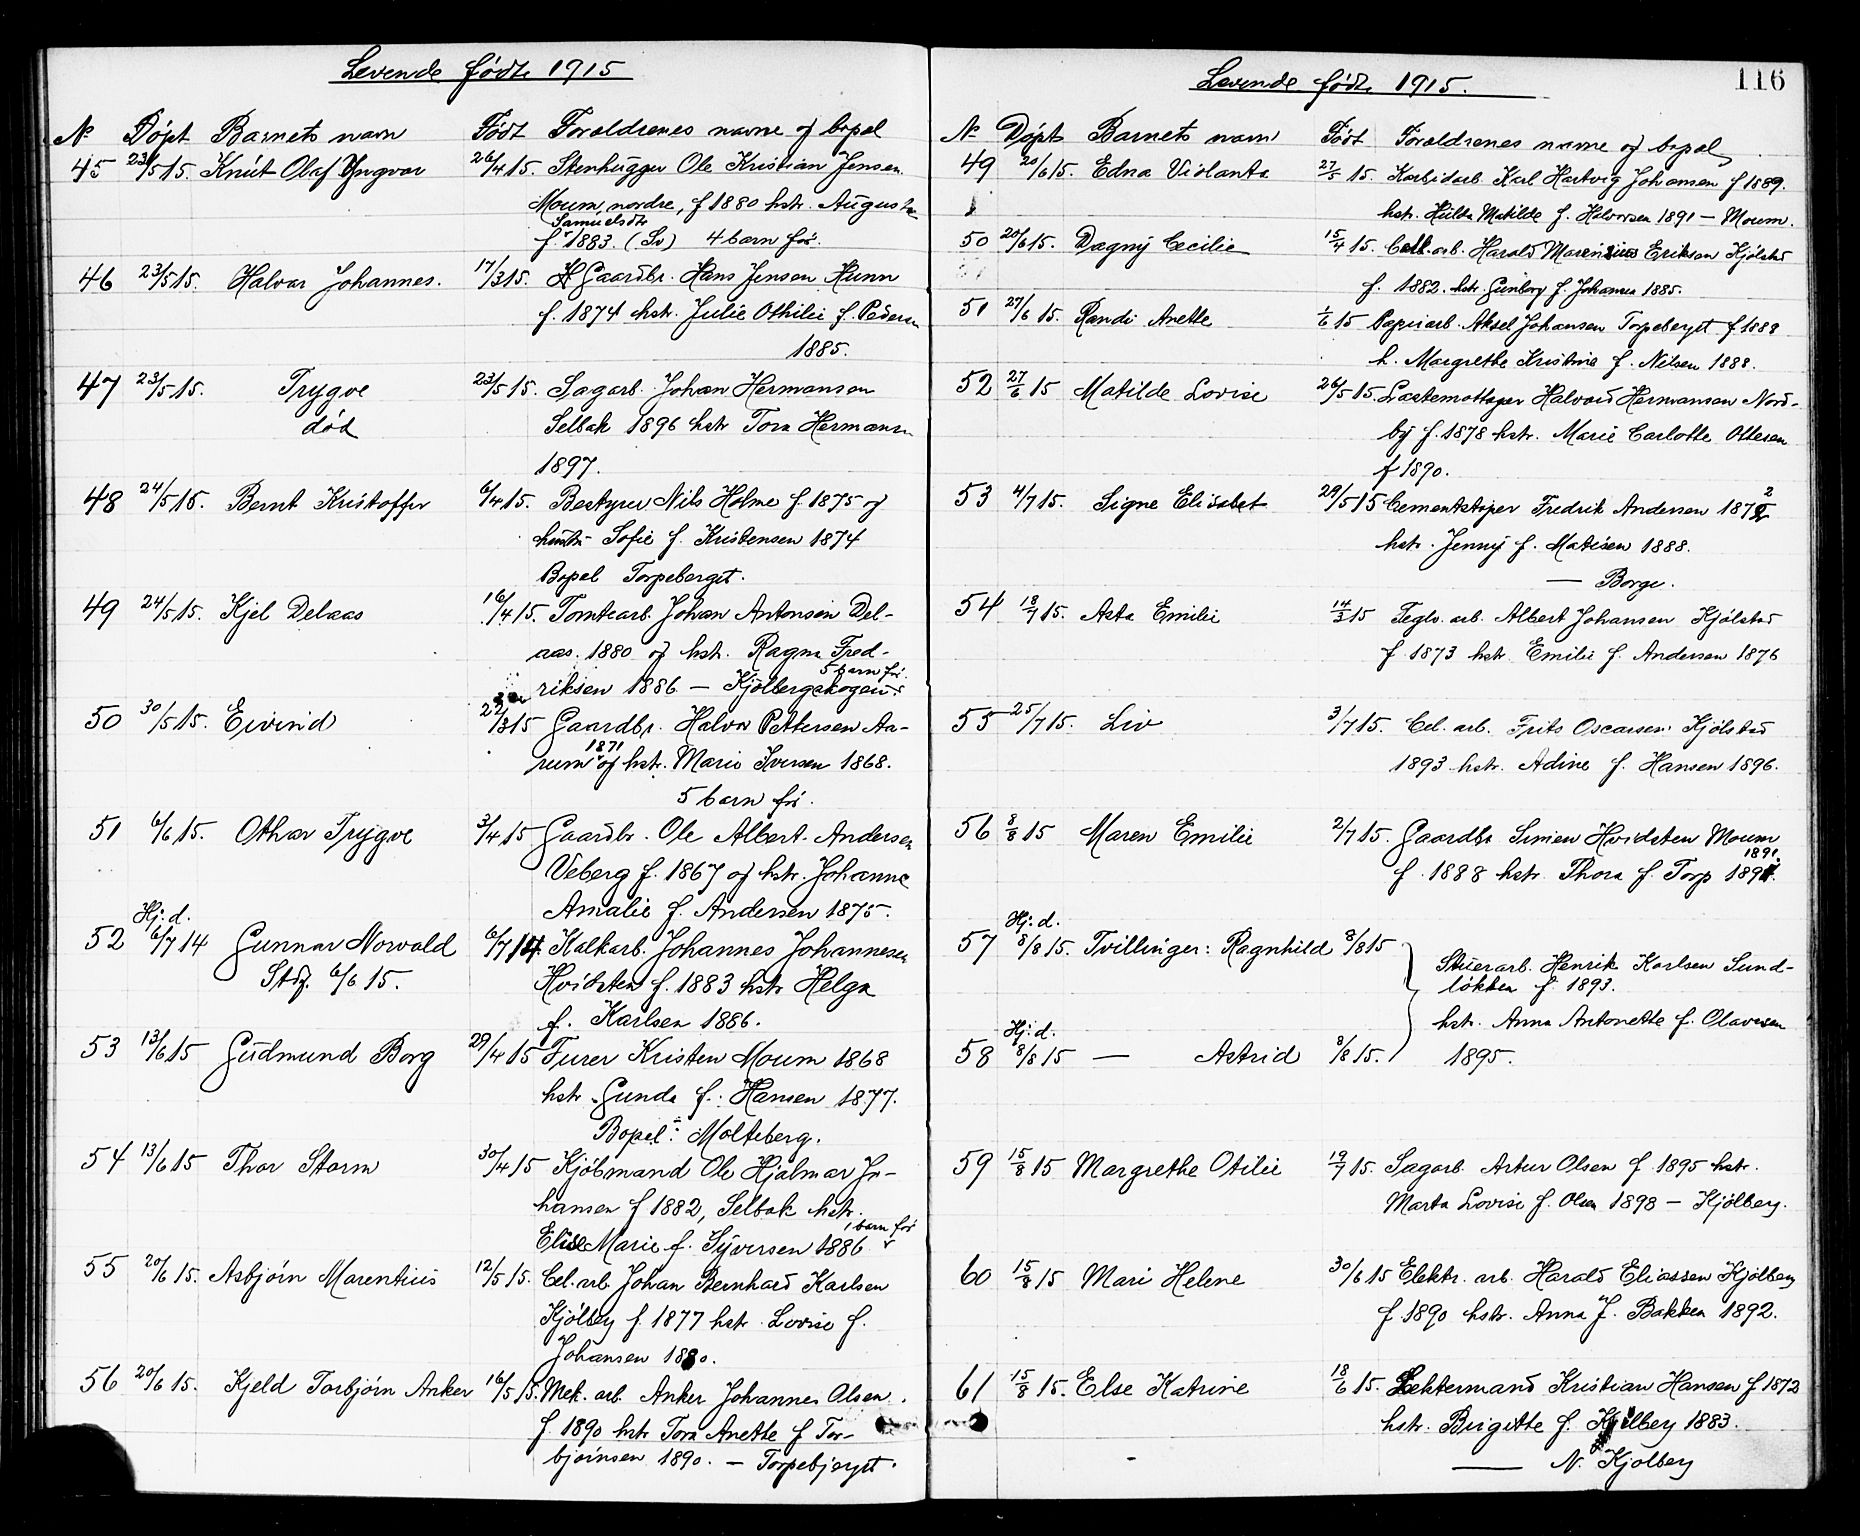 Levende fødte 1915
No Døpt Barnets navn Født Foreldrenes navne og bopæl
45 23/5 15. Knut Olaf Yngvar 26/4 15. Stenhugger Ole Kristian Jensen
Moum nordre, f 1880 hstr. Augusta
Samuelsdtr
f. 1883. (Sv) 4 barn før.
46 23/5 15. Halvar Johannes. 17/3 15. Gaardbr. Hans Jensen Hunn
f. 1874 hstr. Julie Othilie f. Pedersen
1885.
47 23/5 15. Trygve 23/5 15. Sagarb. Johan Hermansen
død Selbak 1896 hstr Tora Hermansen
1897.
48 24/5 15. Bernt Kristoffer 6/4 15. Bestyrer Nils Holme f. 1875 og
hustr Sofie f. Kristensen 1874
Bopæl Torpeberget.
49 24/5 15. Kjel Delaas 16/4 15. Tomtearb. Johan Antonsen Del-
aas. 1880 og hstr. Ragna Fred-
5 barn før
riksen 1886 — Kjølbergskogen
50 30/5 15. Eivind 22/3 15 Gaardbr. Halvor Pettersen Aa-
1871
rum og hstr. Marie Iversen 1868.
5 barn før.
51 6/6 15. Othar Trygve 3/4 15 Gaardbr. Ole Albert Andersen
Veberg f. 1867 og hstr. Johanne
Amalie f. Andersen 1875.
Hj. d.
52 6/7 14 Gunnar Norvald 6/7 14. Kalkarb. Johannes Johannesen
Stdf. 6/6 15. Hvidsten f. 1883 hstr Helga
f. Karlsen 1886.
53 13/6 15 Gudmund Borg 29/4 15 Furer Kristen Moum 1868
hstr. Gunda f. Hansen 1877.
Bopæl: Molteberg.
54 13/6 15 Thor Storm 30/4 15 Kjøbmand Ole Hjalmar Jo-
hansen f 1882, Selbak hstr.
1 barn før
Elise Marie f. Syversen 1886
55 20/6 15. Asbjørn Marentius 12/5 15. Cel. arb. Johan Bernhard Karlsen
Kjølberg f. 1877 hstr. Lovise f.
Johansen 1880.
56 20/6 15. Kjeld Torbjørn Anker 16/5 15. Mek. arb. Anker Johannes Olsen
f. 1890 hstr Tora Anette f Tor-
bjørnsen 1890. — Torpebjerget.
116
Levende fødte 1915.
No Døpt Barnets navn Født Foreldrenes navne og bopæl
49 20/6 15. Edna Violanta 27/5 15. Karbidarb. Karl Hartvig Johansen f 1889.
hstr. Hulda Matilde f. Halvorsen 1891 — Moum.
50 20/6 15. Dagny Cecilie 15/4 15. Cell. arb. Harald Marenius Eriksen Kjølstad
f. 1882. hstr. Gunborg f. Johansen 1885.
51 27/6 15. Randi Anette 1/6 15 Papirarb. Aksel Johansen Torpeberget f. 1888
h. Margrethe Kristine f. Nilsen 1888.
52 27/6 15 Matilde Lovise 26/5 15. Lastemottager Halvard Hermansen Nord-
by f. 1878 hstr. Marie Carlotte Ottesen
f 1890.
53 4/7 15. Signe Elisabet 29/5 15 Cementstøper Fredrik Andersen 1872
hstr. Jenny f. Matisen 1888.
— Borge.
54 18/7 15. Asta Emilie 14/3 15 Teglv. arb. Albert Johansen Kjølstad
f 1873 hstr Emilie f. Andersen 1876
55 25/7 15. Liv 3/7 15. Cel. arb. Frits Oscarsen Kjølstad
1893 hstr. Adine f. Hansen 1896.
56 8/8 15 Maren Emilie 2/7 15. Gaardbr Simen Hvidsten Moum
1891.
f. 1888 hstr. Thora f. Torp
Hj. d.
57 8/8 15. Tvillinger: Ragnhild 8/8 15
Stuerarb. Henrik Karlsen Sund-
løkken f. 1893.
hstr. Anna Antonette f. Olavesen
Hj. d.
58 8/8 15 — Astrid 8/8 15. 1895.
59 15/8 15 Margrethe Otilie 19/7 15. Sagarb. Artur Olsen f. 1895 hstr.
Marta Lovise f. Olsen 1898 — Kjølberg.
60 15/8 15 Mari Helene 30/6 15 Elektr. arb. Harald Eliassen Kjølberg
f. 1890 hstr. Anna f. Bakken 1892.
61 15/8 15. Else Katrine 18/6 15. Lektermand Kristian Hansen f 1872
hstr. Birgitte f. Kjølberg 1883.
— N. Kjølberg